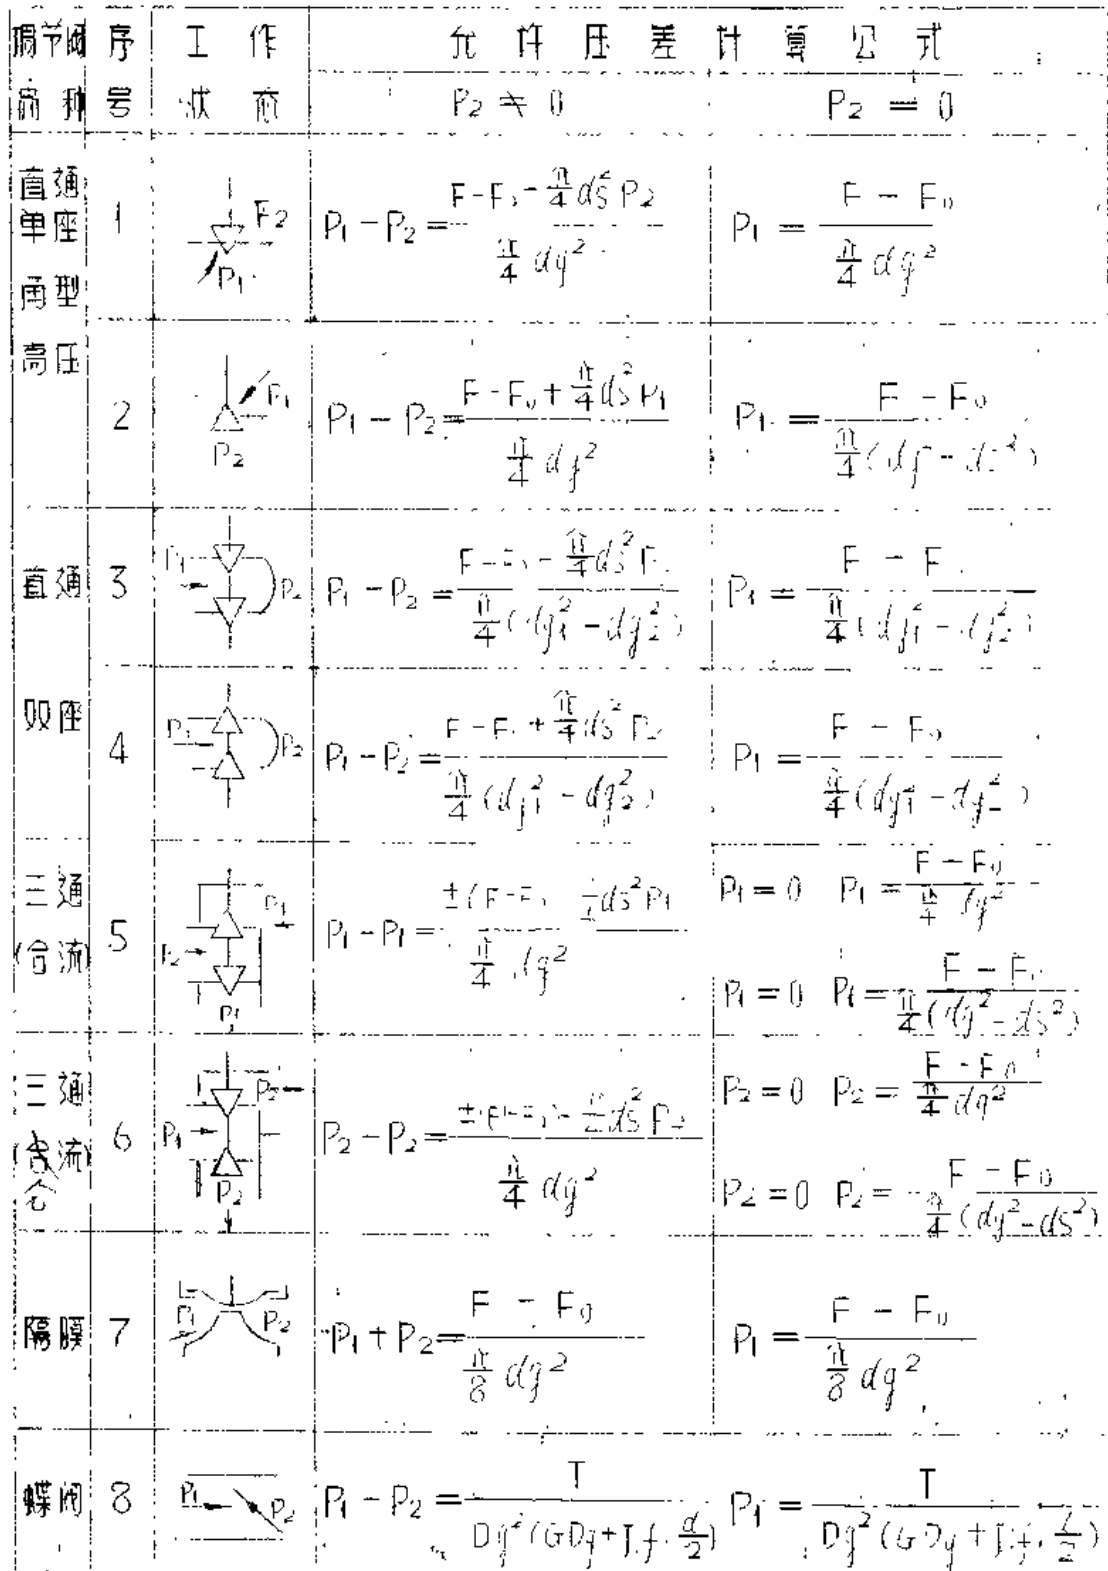 调节阀 序 工作 允许压差计算公式
品种 号 状态 P₂ ≠ 0 P₂ = 0
直通
单座
角型
高压
1 P₁ P₁ - P₂ = (F-F₀-π/4 ds² P₂)/(π/4 dg²) P₁ = (F - F₀)/(π/4 dg²)
2 P₁ P₂ P₁ - P₂ = (F-F₀+π/4 ds² P₁)/(π/4 dg²) P₁ = (F - F₀)/(π/4 (dg² - ds²))
直通
双座
3 P₁ P₂ P₁ - P₂ = (F-F₀-π/4 ds² P)/(π/4 (dg₁² - dg₂²)) P₁ = (F - F)/(π/4 (dg₁² - dg₂²))
4 P₁ P₂ P₁ - P₂ = (F-F₀+π/4 ds² P₂)/(π/4 (dg₁² - dg₂²)) P₁ = (F - F₀)/(π/4 (dg₁² - dg₂²))
三通
(合流)
5 P₁ P₂ P₁ P₁ - P₁ = π/4 dg² P₁ = 0 P₁ = (F - F₀)/(π/4 dg²)
P₁ = 0 P₁ = (F - F₀)/(π/4 (dg² - ds²))
三通
(合流)
分
6 P₂ P₁ P₂ P₂ - P₂ = π/4 dg² P₂ = 0 P₂ = (F - F₀)/(π/4 dg²)
P₂ = 0 P₂ = (F - F₀)/(π/4 (dg² - ds²))
隔膜 7 P₁ P₂ P₁ + P₂ = (F - F₀)/(π/8 dg²) P₁ = (F - F₀)/(π/8 dg²)
蝶阀 8 P₁ P₂ P₁ - P₂ = T/(Dg² (GDg+J.f.d/2)) P₁ = T/(Dg² (GDg+J.f.d/2))